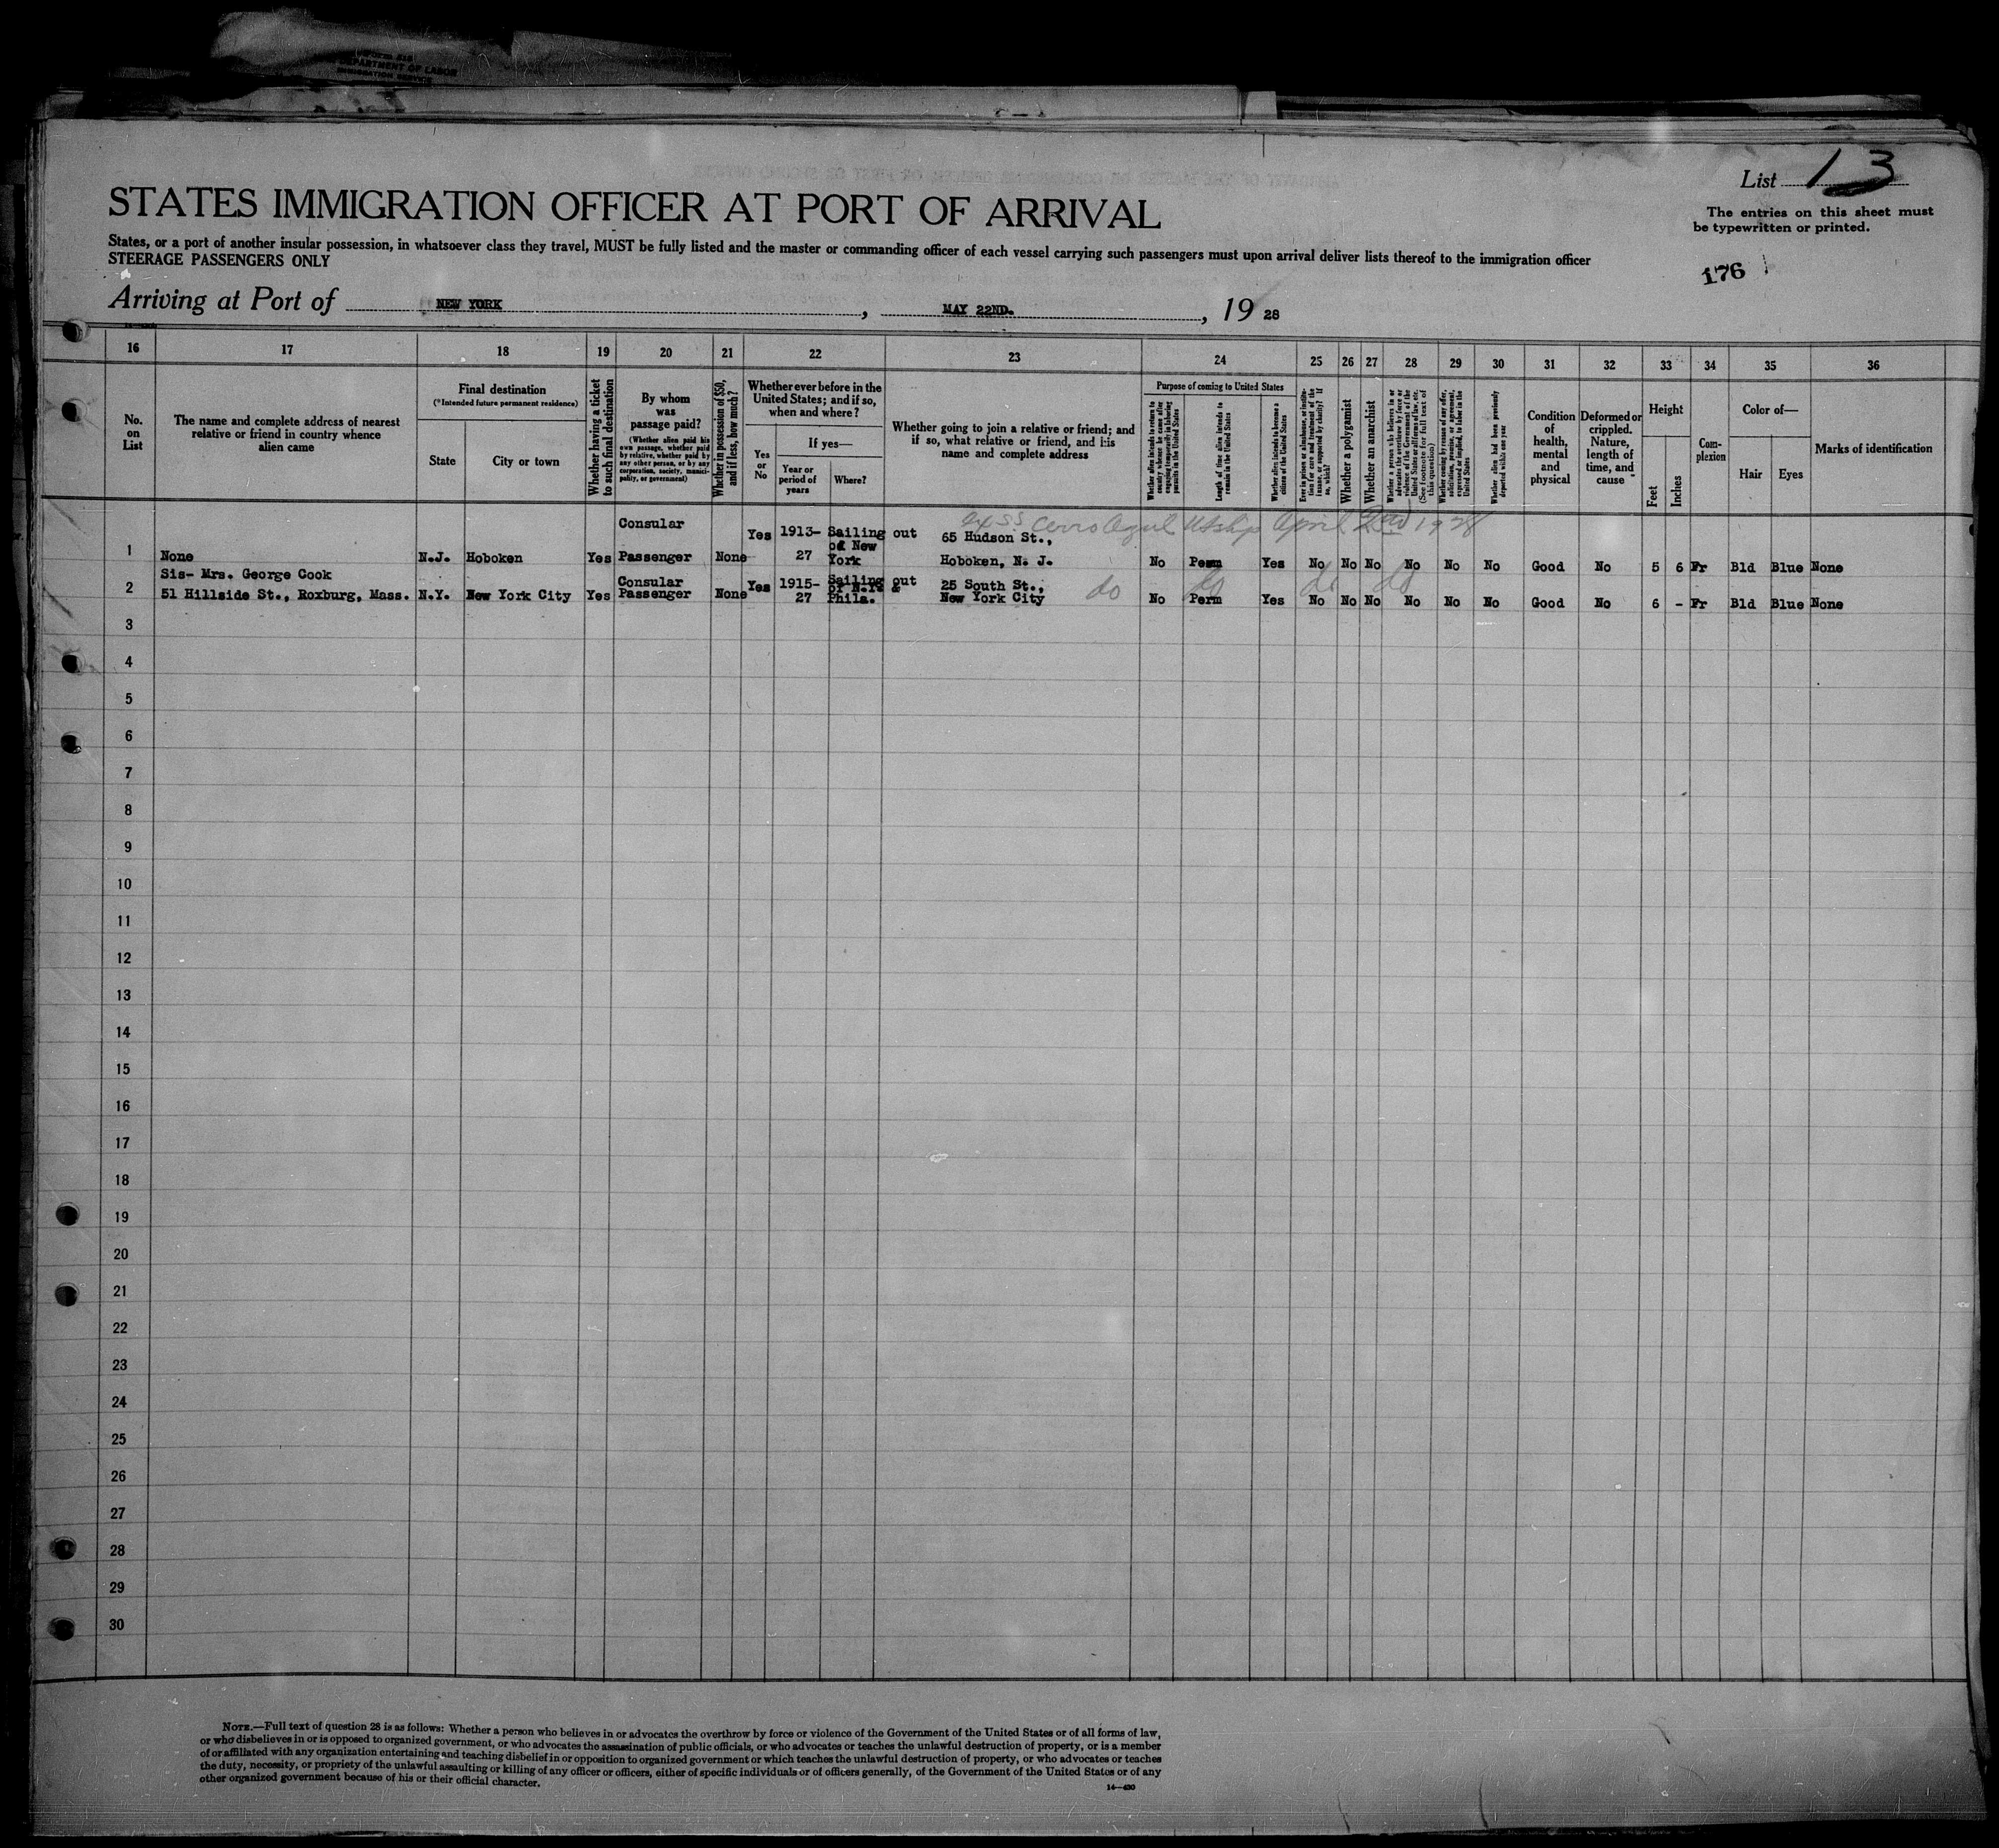 DEPARTMENT OF LABOR
IMMIGRATION SERVICE
List 13
The entries on this sheet must
be typewritten or printed.
176
STATES IMMIGRATION OFFICER AT PORT OF ARRIVAL
States, or a port of another insular possession, in whatsoever class they travel, MUST be fully listed and the master or commanding officer of each vessel carrying such passengers must upon arrival deliver lists thereof to the immigration officer
STEERAGE PASSENGERS ONLY
Arriving at Port of NEW YORK, MAY 22ND., 19 28
16 17 18 19 20 21 22 23 24 25 26 27 28 29 30 31 32 33 34 35 36
No.
on
List
The name and complete address of nearest
relative or friend in country whence
alien came
Final destination
(*Intended future permanent residence)
State
City or town
Whether having a ticket
to such final destination
By whom
was
passage paid?
(Whether alien paid his
own passage, whether paid
by relative, whether paid by
any other person, or by any
corporation, society, munici-
pality, or government)
Whether in possession of $50,
and if less, how much?
Whether ever before in the
United States; and if so,
when and where?
Yes
or
No
If yes—
Year or
period of
years
Where?
Whether going to join a relative or friend; and
if so, what relative or friend, and his
name and complete address
Purpose of coming to United States
Whether alien intends to return to
country whence he came after
engaging temporarily in laboring
pursuits in the United States
Length of time alien intends to
remain in the United States
Whether alien intends to become a
citizen of the United States
Ever in prison or almshouse, or institu-
tion for care and treatment of the
insane, or supported by charity? If
so, which?
Whether a polygamist
Whether an anarchist
Whether a person who believes in or
advocates the overthrow by force or
violence of the Government of the
United States or all forms of law, etc.
(See footnote for full text of
this question)
Whether coming by reason of any offer,
solicitation, promise, or agreement,
expressed or implied, to labor in the
United States
Whether alien had been previously
deported within one year
Condition
of
health,
mental
and
physical
Deformed or
crippled.
Nature,
length of
time, and
cause
Height
Feet
Inches
Com-
plexion
Color of—
Hair
Eyes
Marks of identification
ex SS Cerro Azul April 2nd 1928
1 None N.J. Hoboken Yes Consular Passenger None Yes 1913-27 Sailing out of New York 65 Hudson St., Hoboken, N. J. No Perm Yes No No No No No No Good No 5 6 Fr Bld Blue None
2 Sis- Mrs. George Cook
51 Hillside St., Roxburg, Mass. N.Y. New York City Yes Consular Passenger None Yes 1915-27 Sailing out of N.Y. & Phila. 25 South St., New York City do do do do No Perm Yes No No No No No No Good No 6 - Fr Bld Blue None
3
4
5
6
7
8
9
10
11
12
13
14
15
16
17
18
19
20
21
22
23
24
25
26
27
28
29
30
NOTE.—Full text of question 28 is as follows: Whether a person who believes in or advocates the overthrow by force or violence of the Government of the United States or of all forms of law,
or who disbelieves in or is opposed to organized government, or who advocates the assassination of public officials, or who advocates or teaches the unlawful destruction of property, or is a member
of or affiliated with any organization entertaining and teaching disbelief in or opposition to organized government or which teaches the unlawful destruction of property, or who advocates or teaches
the duty, necessity, or propriety of the unlawful assaulting or killing of any officer or officers, either of specific individuals or of officers generally, of the Government of the United States or of any
other organized government because of his or their official character.
14—430